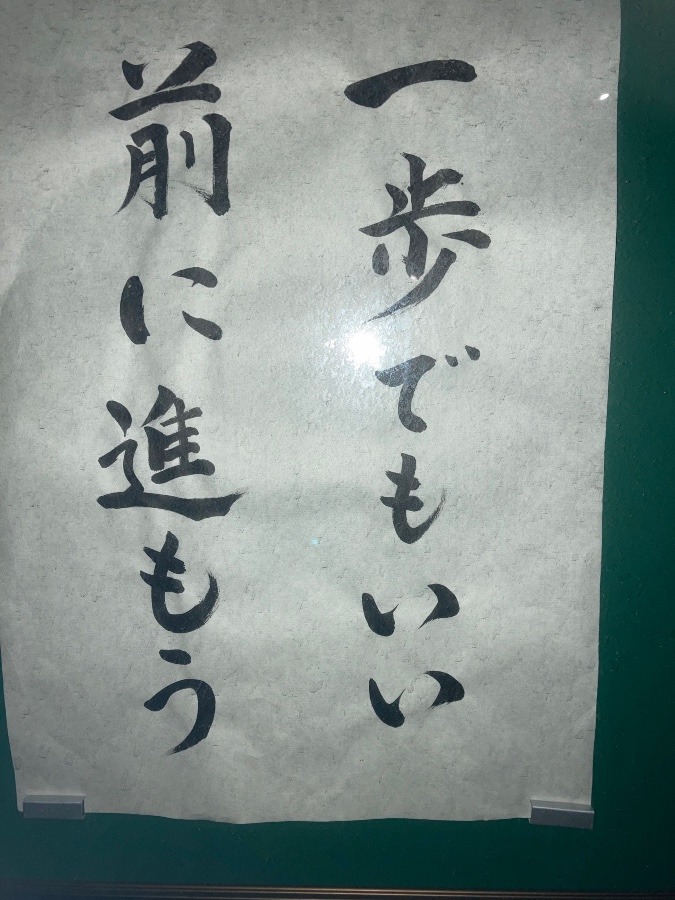 一歩でもいい
前に進もう